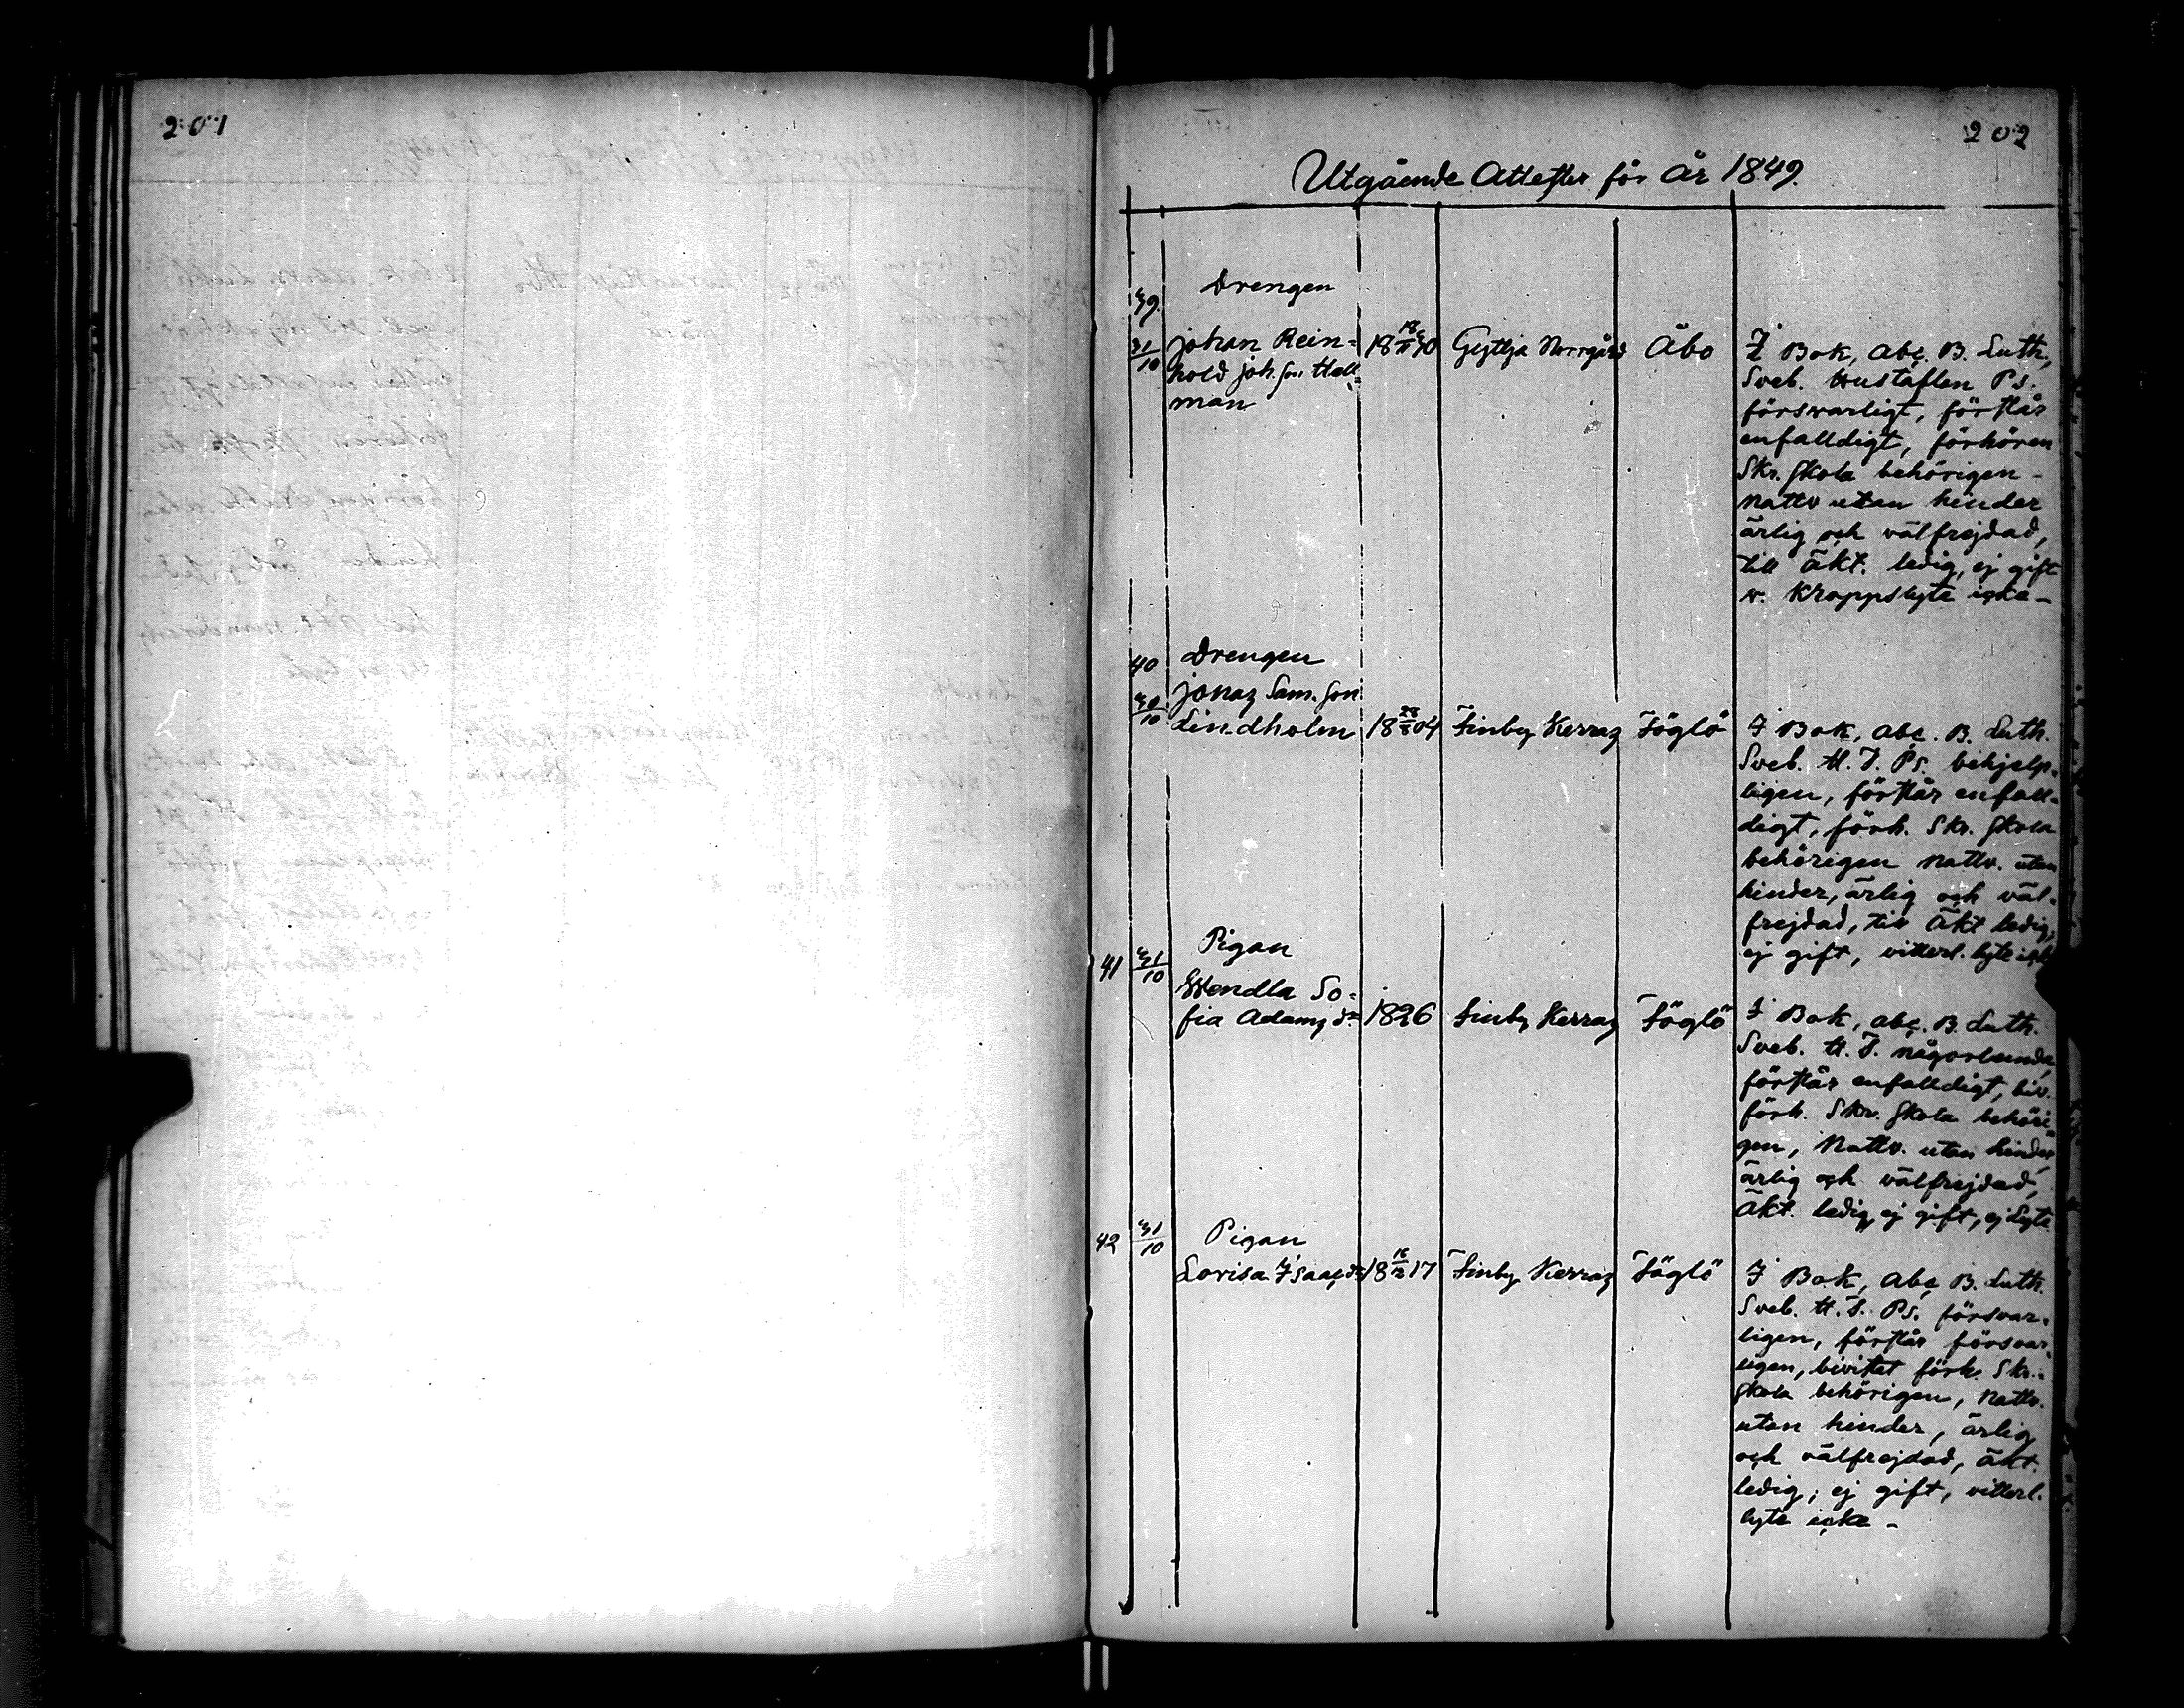 201
202
Utgående Attester för År 1849.
39.
31/10
Drengen
Johan Rein=
hold Joh.son Hell=
man
18 18/11 30
Gyttja Norrgård
Åbo
I Bok, abc. B. Luth,
Sveb. Hustaflen Ps.
försvarligt, förstår
enfalldigt, förhören
Skr. Skola behörigen -
nattv utan hinder
ärlig och välfrejdad,
till äkt. ledig, ej gift
v. Kroppslyte icke -
40
30/10
Drengen
Jonas Sam.son
Lindholm
1804
Finby Kerras
Föglö
I Bok, abc. B. Luth.
Sveb. H. T. Ps. behjelp=
ligen, förstår enfall=
digt, förh. Skr. Skola
behörigen nattv. utan
hinder, ärlig och väl=
frejdad, till Äkt ledig,
ej gift, vitterl. lyte icke
41
31/10
Pigan
Wendla So=
fia Adams dr
1826
Finby Kerras
Föglö
I Bok, abc. B. Luth.
Sveb. H. T. någorlunda,
förstår enfalldigt, biv.
förh. Skr. Skola behöri=
gen, Nattv. utan hinder,
ärlig och välfrejdad,
Äkt. ledig, ej gift, ej Lyte
42
31/10
Pigan
Lovisa Isaacs dr
18 16/12 17
Finby Kerras
Föglö
I Bok, abc B. Luth.
Sveb. H. T. Ps. försvar=
ligen, förstår försvar=
ligen, bivistat förh. Skr.=
Skola behörigen, Nattv.
utan hinder, ärlig
och välfrejdad, äkt.
ledig, ej gift, vitterl.
lyte icke -